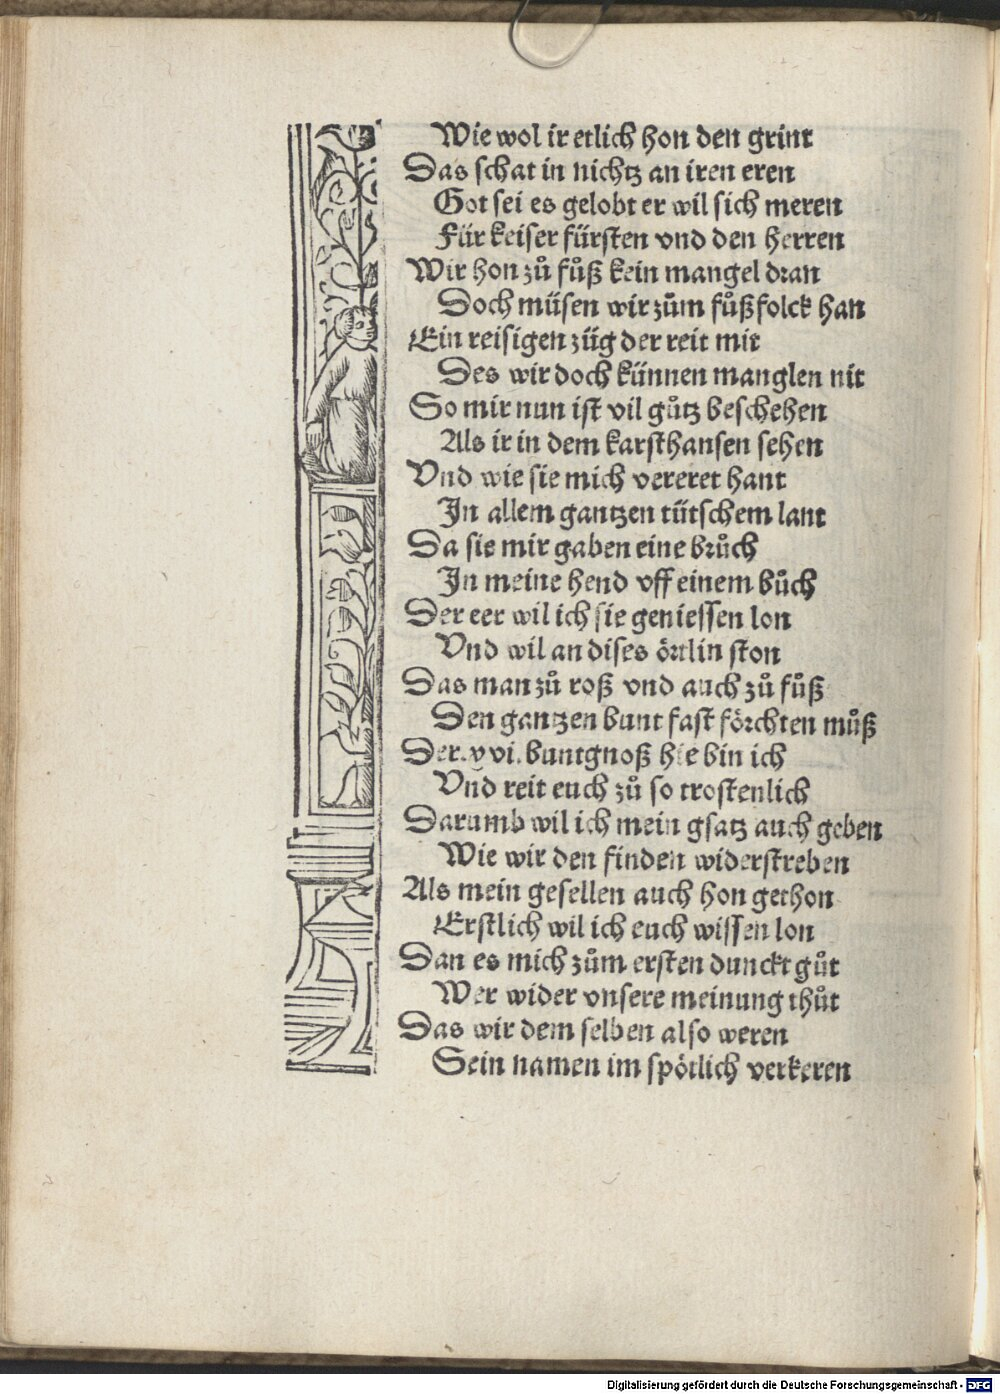 Wie wol ir etlich hon den grint
Das schat in nichtz an iren eren
Got sei es gelobt er wil sich meren
Für keiser fürsten vnd den herren
Wir hon zů fůß kein mangel dran
Doch müsen wir zům fůßfolck han
Ein reisigen züg der reit mit
Des wir doch künnen manglen nit
So mir nun ist vil gůtz beschehen
Als ir in dem karsthansen sehen
Vnd wie sie mich vereret hant
In allem gantzen tütschem lant
Da sie mir gaben eine brůch
In meine hend vff einem bůch
Der eer wil ich sie geniessen lon
Vnd wil an dises örtlin ston
Das man zů roß vnd auch zů fůß
Den gantzen bunt fast förchten můß
Der. xvi. buntgnoß hie bin ich
Vnd reit euch zů so trostenlich
Darumb wil ich mein gsatz auch geben
Wie wir den finden widerstreben
Als mein gesellen auch hon gethon
Erstlich wil ich euch wissen lon
Dan es mich zům ersten dunckt gůt
Wer wider vnsere meinung thůt
Das wir dem selben also weren
Sein namen im spötlich verkeren
Digitalisierung gefördert durch die Deutsche Forschungsgemeinschaft - DFG